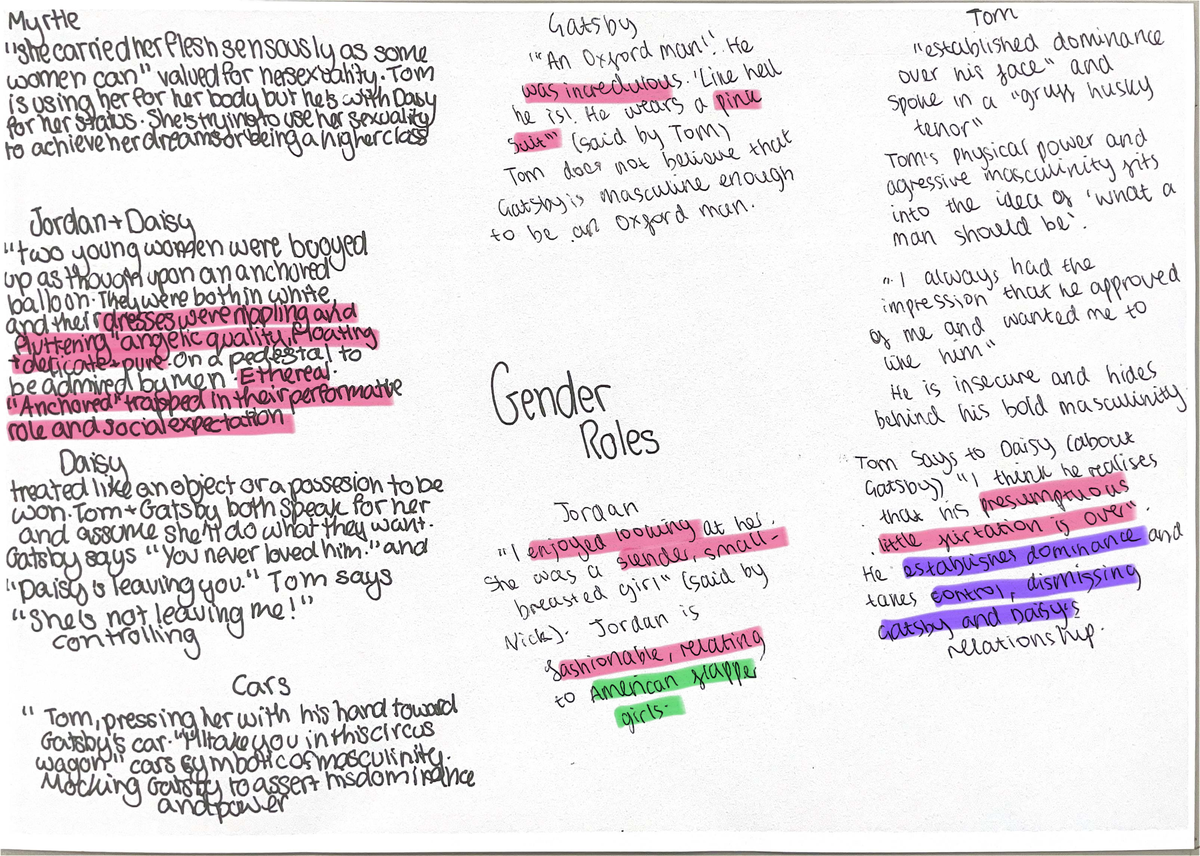 Myrtle
"she carried her flesh sensously as some
women can" valued for hersexuality. Tom
is using her for her body but he's with Daisy
for her status. She's trying to use her sexuality
to achieve her dreams of being a higher class
Jordan + Daisy
"two young women were booyed
up as though upon an anchored
balloon. They were both in white,
and their dresses were rippling and
fluttering" angelic quality, floating
+ delicate + pure. On a pedestal to
be admired by men. Ethereal.
"Anchored" trapped in their performative
role and social expectation
Daisy
treated like an object or a possesion to be
won. Tom + Gatsby both speak for her
and assume she'll do what they want.
Gatsby says "You never loved him." and
"Daisy's leaving you." Tom says
"She's not leaving me!"
controlling
Cars
" Tom, pressing her with his hand toward
Gatsby's car. "I'll take you in this circus
wagon" cars symbolic of masculinity.
Mocking Gatsby to assert his dominance
and power
Gatsby
"'An Oxford man!' He
was incredulous. 'Like hell
he is! He wears a pink
suit'" (said by Tom)
Tom does not believe that
Gatsby is masculine enough
to be an Oxford man.
Gender
Roles
Jordan
"I enjoyed looking at her.
She was a slender, small-
breasted girl" (said by
Nick). Jordan is
fashionable, relating
to American flapper
girls.
Tom
"established dominance
over his face" and
spoke in a "gruff husky
tenor"
Tom's physical power and
agressive masculinity fits
into the idea of 'what a
man should be'.
"I always had the
impression that he approved
of me and wanted me to
like him"
He is insecure and hides
behind his bold masculinity
Tom says to Daisy (about
Gatsby) "I think he realises
that his presumptuous
little flirtation is over".
He establishes dominance and
takes control, dismissing
Gatsby and Daisy's
relationship.